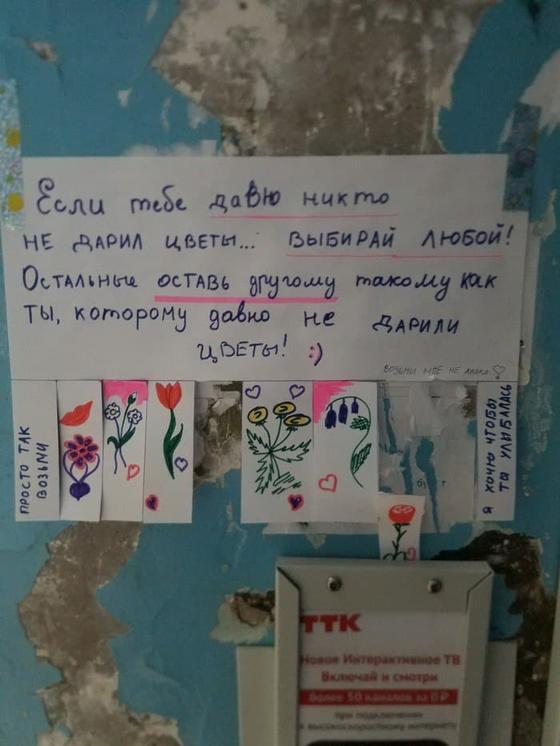 Если тебе давю никто
НЕ ДАРИЛ ЦВЕТЫ... ВЫБИРАЙ ЛЮБОЙ!
Остальные оставь другому такому как
ты, которому давно не дарили
цветы! :)
возьми мне не жалко
ПРОСТО ТАК
ВОЗЬМИ
Я ХОЧУ ЧТОБЫ
ТЫ УЛЫБАЛАСЬ
ТТК
Новое Интерактивное ТВ
Включай и смотри
более 50 каналов за 0 ₽
при подключении
к высокоскоростному интернету